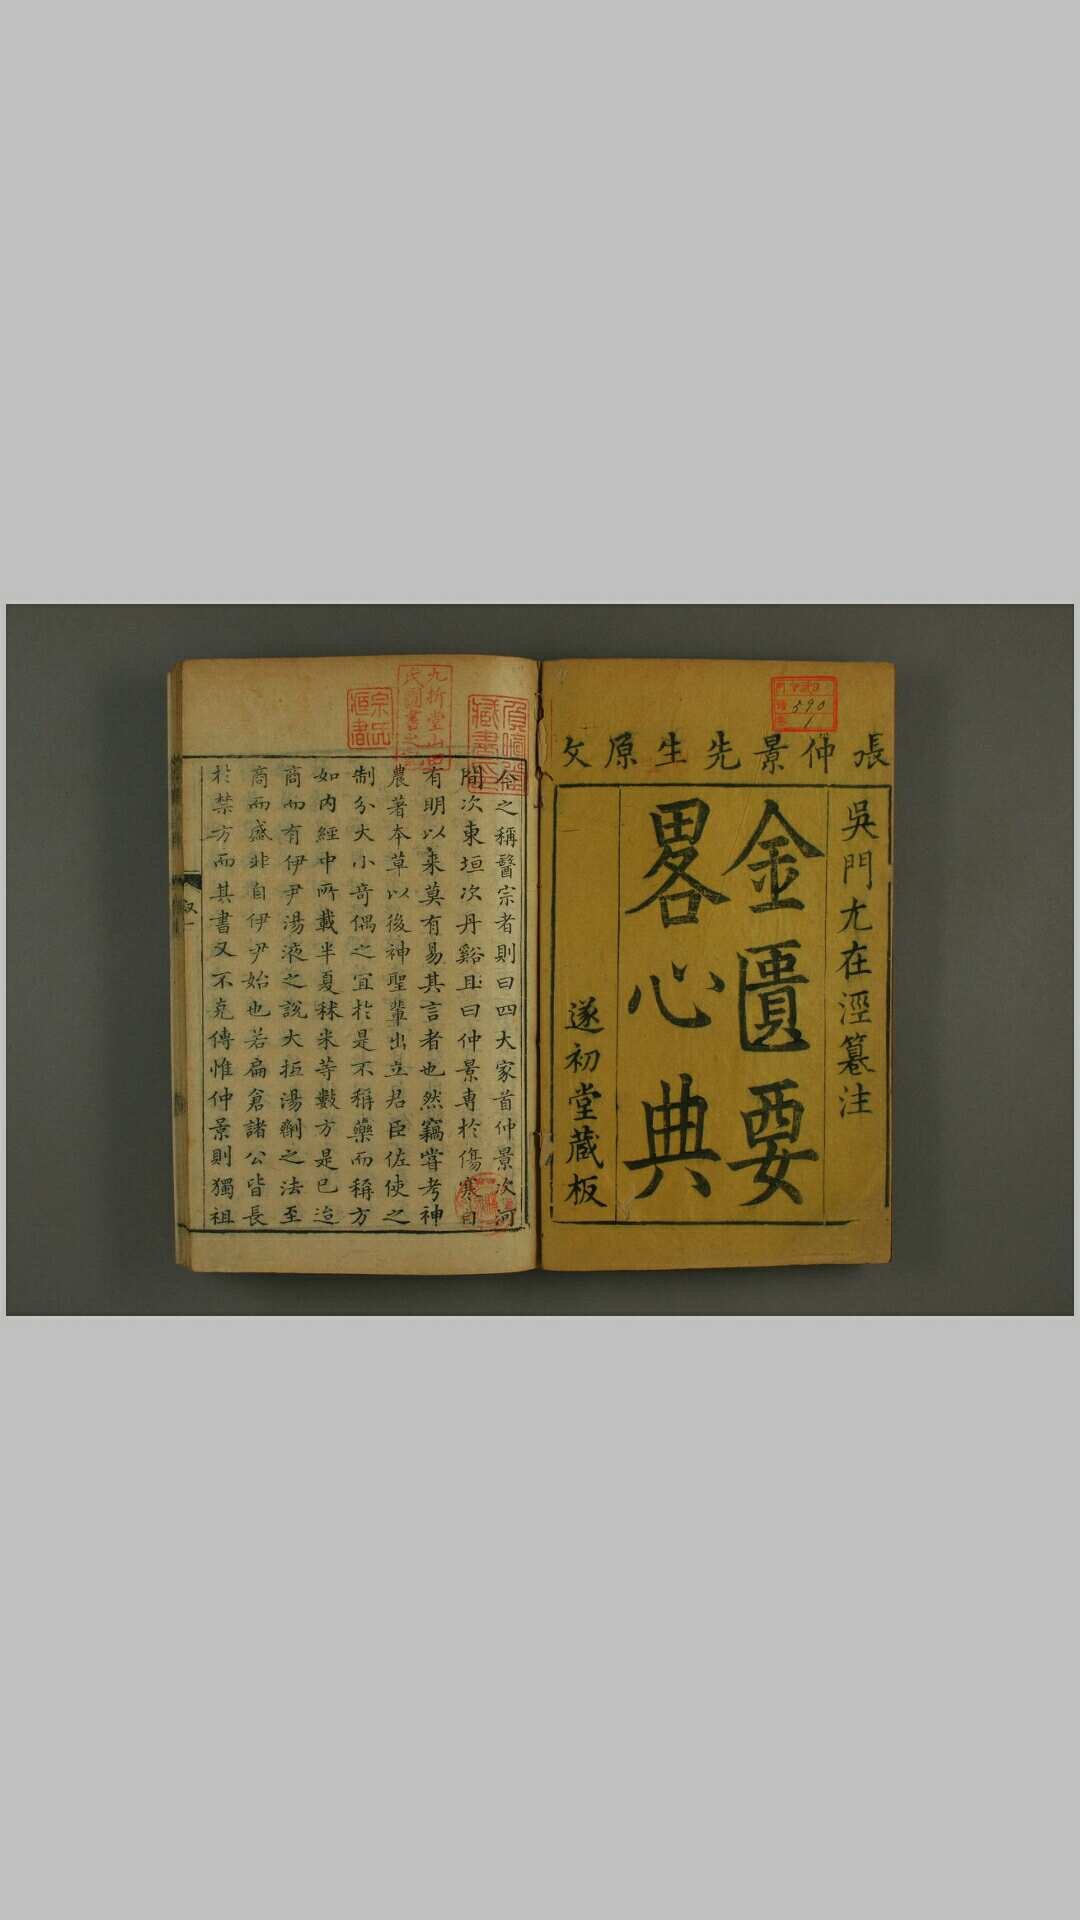 張仲景先生原文
吳門尤在涇纂注
金匱要
畧心典
遂初堂藏板
590
1
今之稱醫宗者則曰四大家首仲景次河
間次東垣次丹谿且曰仲景専於傷寒自
有明以来莫有易其言者也然竊嘗考神
農著本草以後神聖輩出立君臣佐使之
制分大小奇偶之宜於是不稱藥而稱方
如内經中所載半夏秫米等數方是已迨
商而有伊尹湯液之說大抵湯劑之法至
商而盛非自伊尹始也若扁倉諸公皆長
於禁方而其書又不克傳惟仲景則獨祖
叙
一
九折堂山田
氏圖書之記
宗氏
藏書